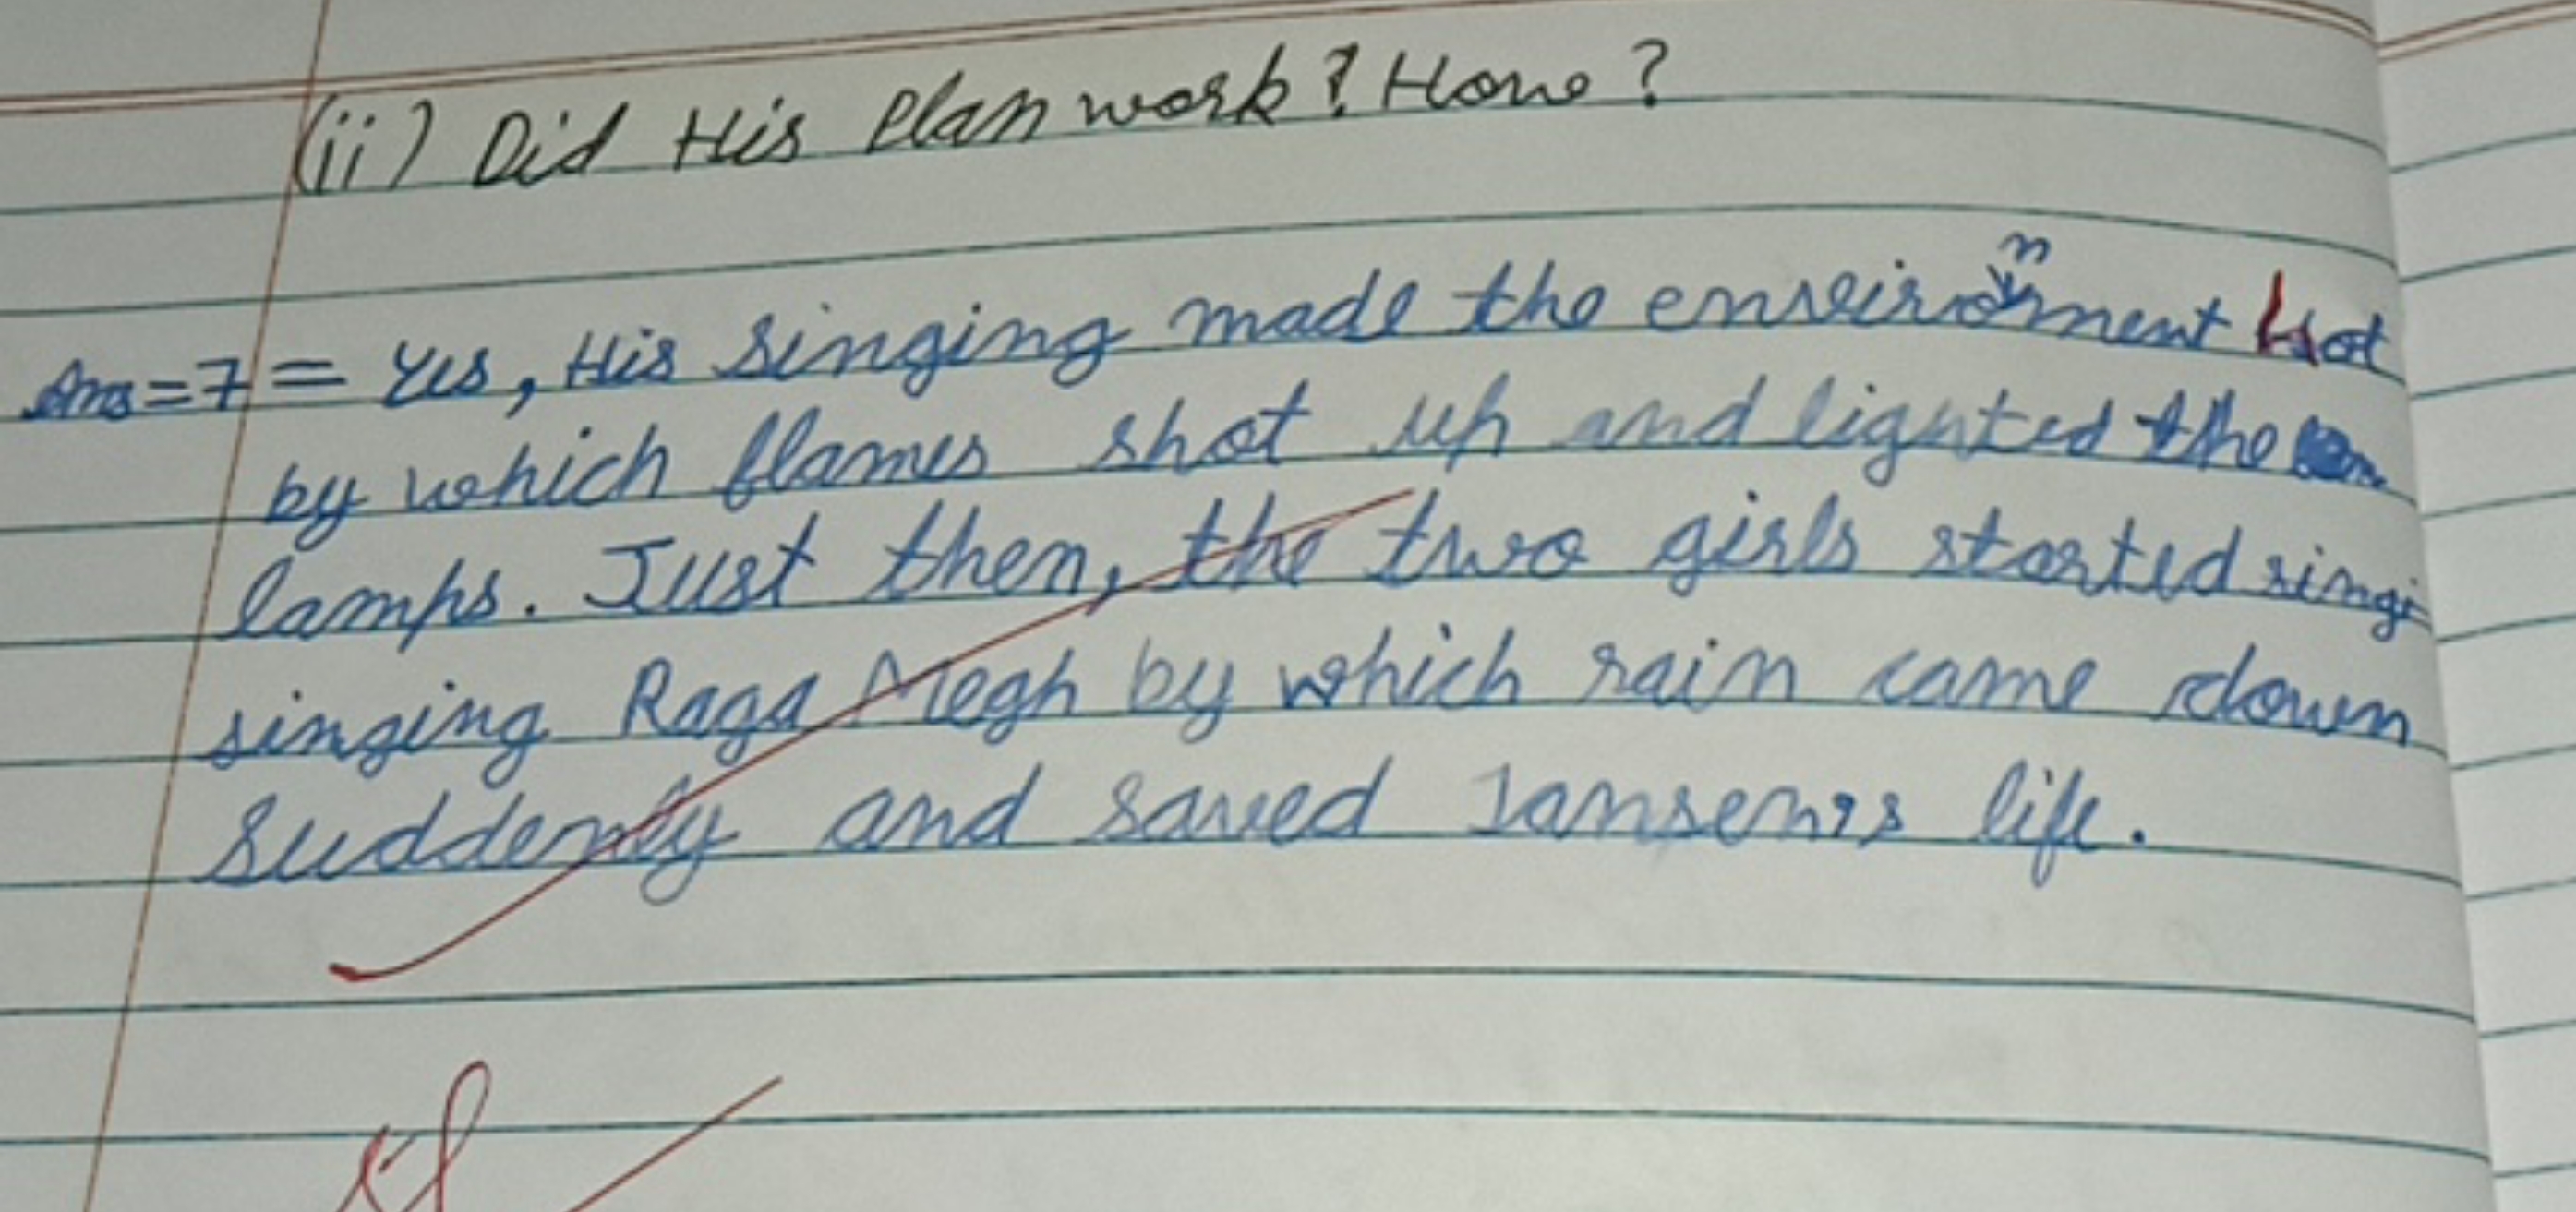 (ii) Did His Plan work? How?
Ans=7= Yes, His singing made the environment Hot
by which flames shot up and lighted the
lamps. Just then, the two girls started singi
singing Raga Megh by which rain came down
suddenly and saved Tansen's life.